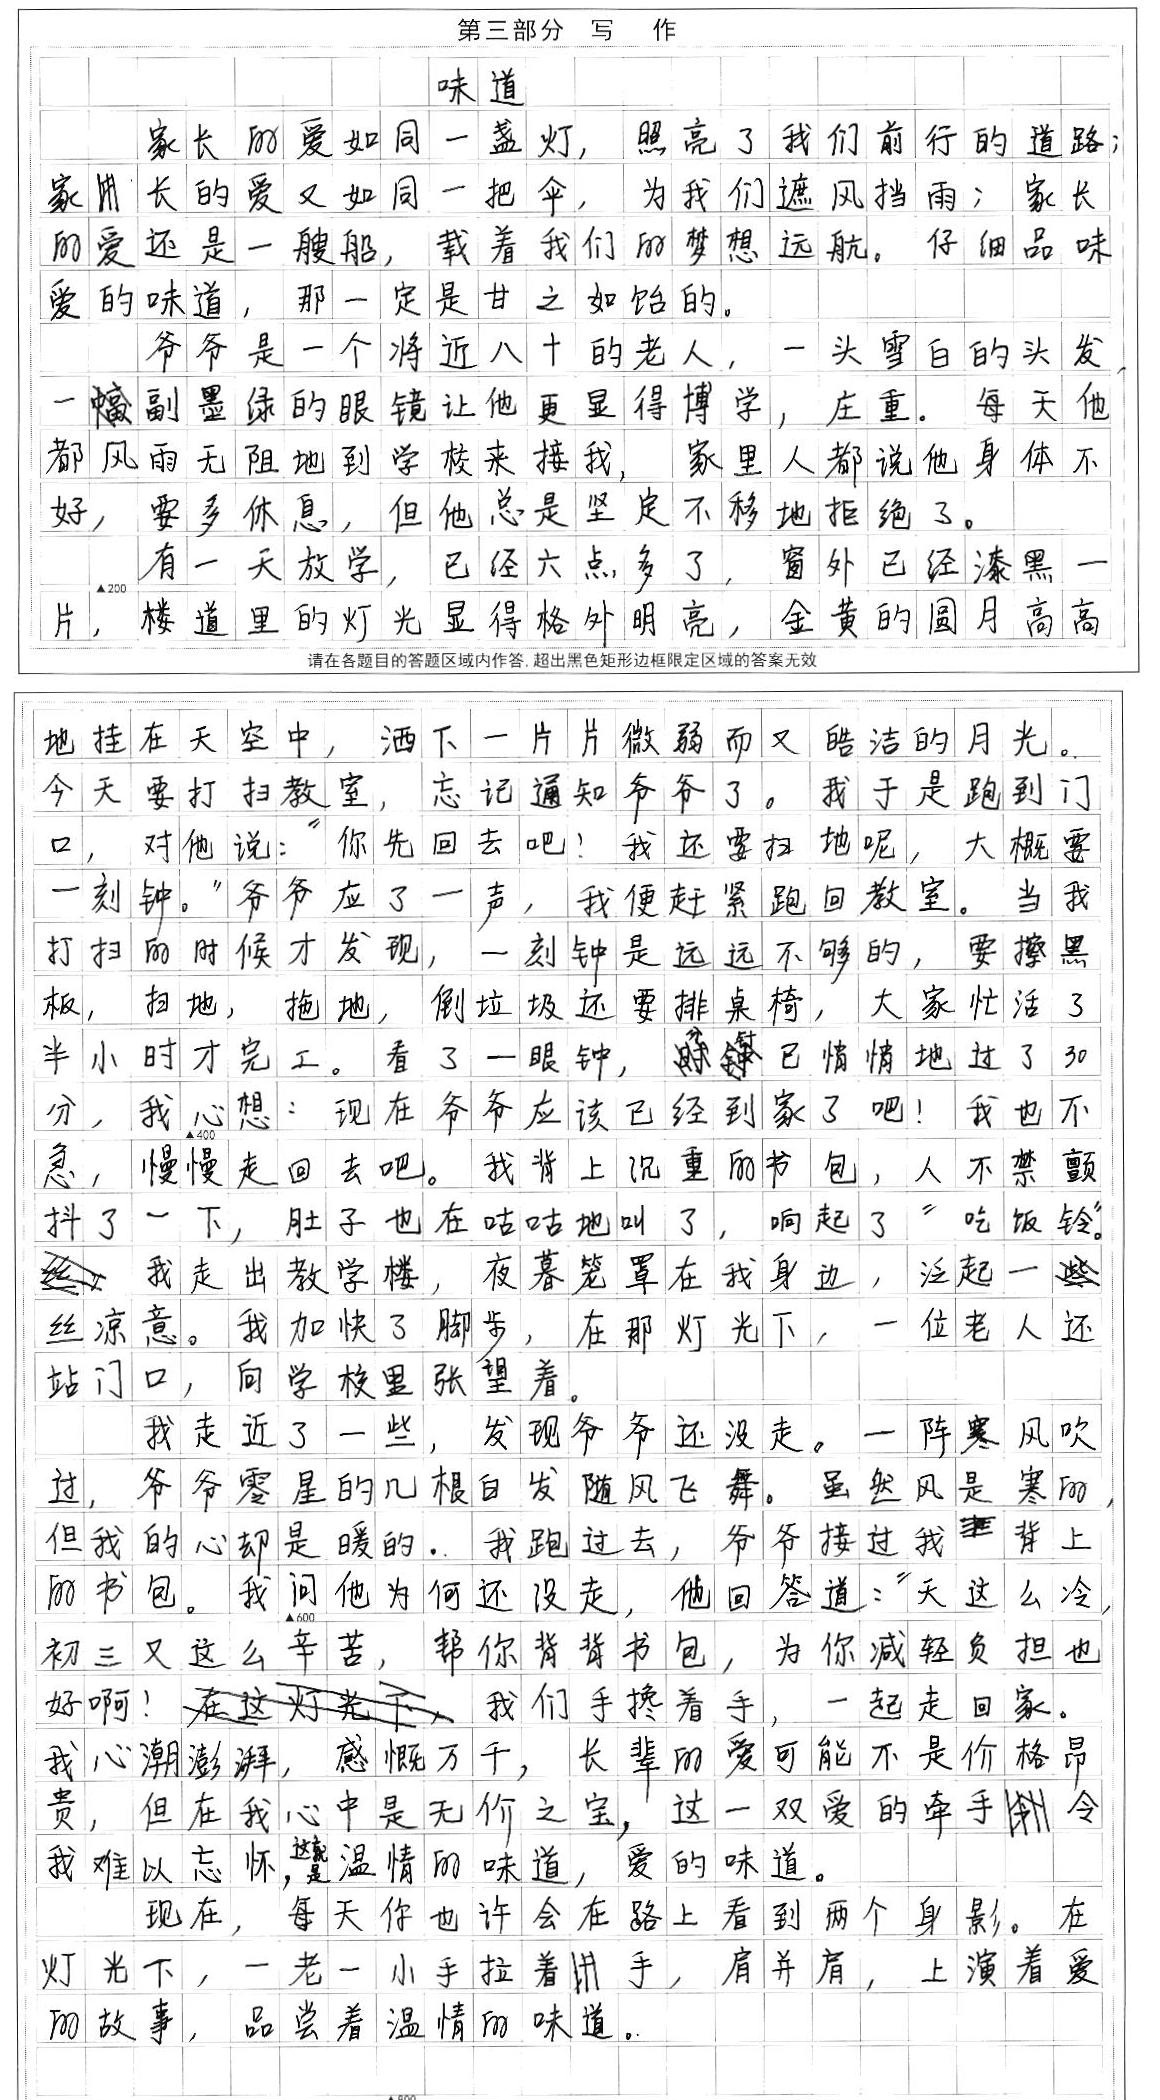 第三部分 写 作
味道
家长的爱如同一盏灯，照亮了我们前行的道路；
家长的爱又如同一把伞，为我们遮风挡雨；家长
的爱还是一艘船，载着我们的梦想远航。仔细品味
爱的味道，那一定是甘之如饴的。
爷爷是一个将近八十的老人，一头雪白的头发，
一副墨绿的眼镜让他更显得博学，庄重。每天他
都风雨无阻地到学校来接我，家里人都说他身体不
好，要多休息，但他总是坚定不移地拒绝了。
有一天放学，已经六点多了，窗外已经漆黑一
▲200
片，楼道里的灯光显得格外明亮，金黄的圆月高高
请在各题目的答题区域内作答，超出黑色矩形边框限定区域的答案无效
地挂在天空中，洒下一片片微弱而又皓洁的月光。
今天要打扫教室，忘记通知爷爷了。我于是跑到门
口，对他说：“你先回去吧！我还要扫地呢，大概要
一刻钟。”爷爷应了一声，我便赶紧跑回教室。当我
打扫的时候才发现，一刻钟是远远不够的，要擦黑
板，扫地，拖地，倒垃圾还要排桌椅，大家忙活了
半小时才完工。看了一眼钟，分针已悄悄地过了30
分，我心想：现在爷爷应该已经到家了吧！我也不
▲400
急，慢慢走回去吧。我背上沉重的书包，人不禁颤
抖了一下，肚子也在咕咕地叫了，响起了“吃饭铃”。
我走出教学楼，夜暮笼罩在我身边，泛起一
丝凉意。我加快了脚步，在那灯光下，一位老人还
站门口，向学校里张望着。
我走近了一些，发现爷爷还没走。一阵寒风吹
过，爷爷零星的几根白发随风飞舞。虽然风是寒的，
但我的心却是暖的。我跑过去，爷爷接过我背上
的书包。我问他为何还没走，他回答道：“天这么冷，
▲600
初三又这么辛苦，帮你背背书包，为你减轻负担也
好啊！我们手搀着手，一起走回家。
我心潮澎湃，感慨万千，长辈的爱可能不是价格昂
贵，但在我心中是无价之宝，这一双爱的牵手令
我难以忘怀，这就是温情的味道，爱的味道。
现在，每天你也许会在路上看到两个身影。在
灯光下，一老一小手拉着手，肩并肩，上演着爱
的故事，品尝着温情的味道。